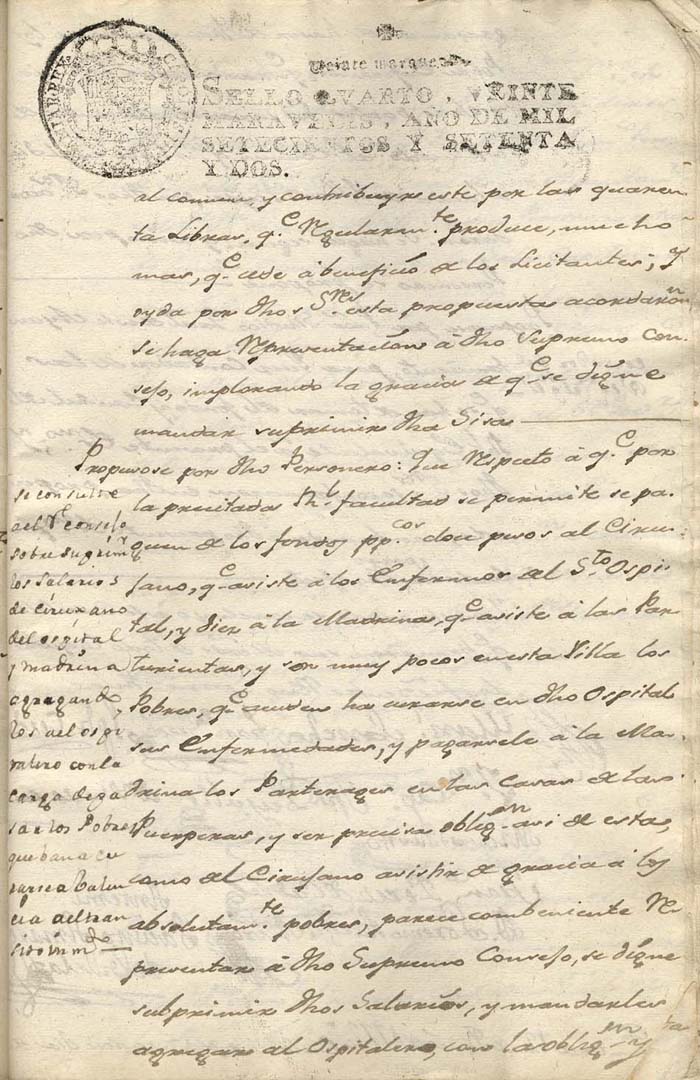 Veinte marauedis
SELLO QVARTO, VEINTE
MARAVEDIS, AÑO DE MIL
SETECIENTOS Y SETENTA
Y DOS.
al comun, y contribuyre este por las quaren-
ta Libras, q.e Regularm.te produce, mucho
mas, q.e cede â beneficio de los Licitantes; Y
oyda por dhos S.res esta propuesta acordaron
se haga Representacion â dho Supremo Con-
sejo, implorando la gracia de q.e se digne
mandar suprimir dha Sisa
Propusose por dho Personero: Que Respeto â q.e por
la precitada Rl. facultad se permite se pa-
guen de los fondos pp.cos doce pesos al Ciru-
jano, q.e asiste â los Enfermos del S.to Ospi-
tal, y Diez â la Madrina, q.e asiste â las Par-
turientas, y son muy pocos en esta Villa los
Pobres, q.e acuden ha curarse en dho Ospital
sus Enfermedades, y pagarsele â la Ma-
drina los Parterages en las casas de las
Puerperas, y ser precisa oblig.on asi de esta,
como del Cirujano asistir de gracia â los
absolutam.te pobres, parece combeniente Re-
presentar â dho Supremo Consejo, se digne
subprimir dhos Salarios, y mandarles
agregar al Ospitalero, con la oblig.on y
se consulte
a el Rl. consejo
sobre suprim.r
los salarios
de ciruxano
del ospital
y madrina
agregando
los a el ospi
talero con la
carga de ga
sar los Pobres
que ban a cu
rarse a Valen
cia a el tran
sito in m.d